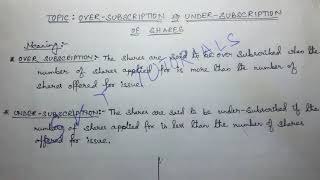 TOPIC: OVER-SUBSCRIPTION & UNDER-SUBSCRIPTION
OF SHARES
Meaning:-
* OVER SUBSCRIPTION:- The shares are said to be over subscribed when the
number of shares applied for is more than the number of
shares offered for issue.
* UNDER-SUBSCRIPTION:- The shares are said to be under-subscribed if the
number of shares applied for is less than the number of shares
offered for issue.